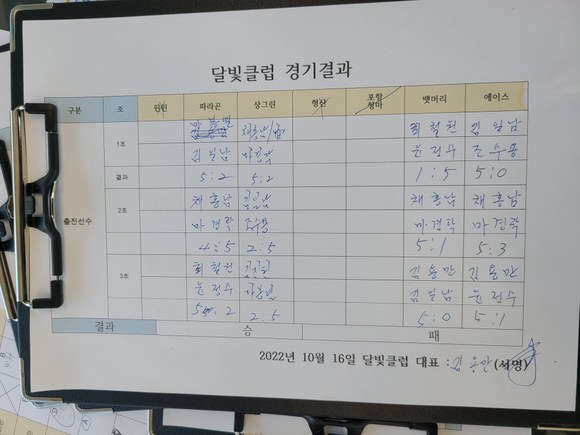 달빛클럽 경기결과
구분 조 윈윈 파라곤 상그린 형산 포항청마 뱃머리 에이스
1조 최철원 김일남
김일남 윤정수 조수용
결과 5:2 5:2 1:5 5:0
출전선수 2조 채홍남 채홍남 채홍남
마경락 조수용 마경락 마경락
4:5 2:5 5:1 5:3
3조 최철원 김용만 김용만
윤정수 김일남 윤정수
5:2 2 5 5:0 5:1
결과 승 패
2022년 10월 16일 달빛클럽 대표 : 김용만 (서명)